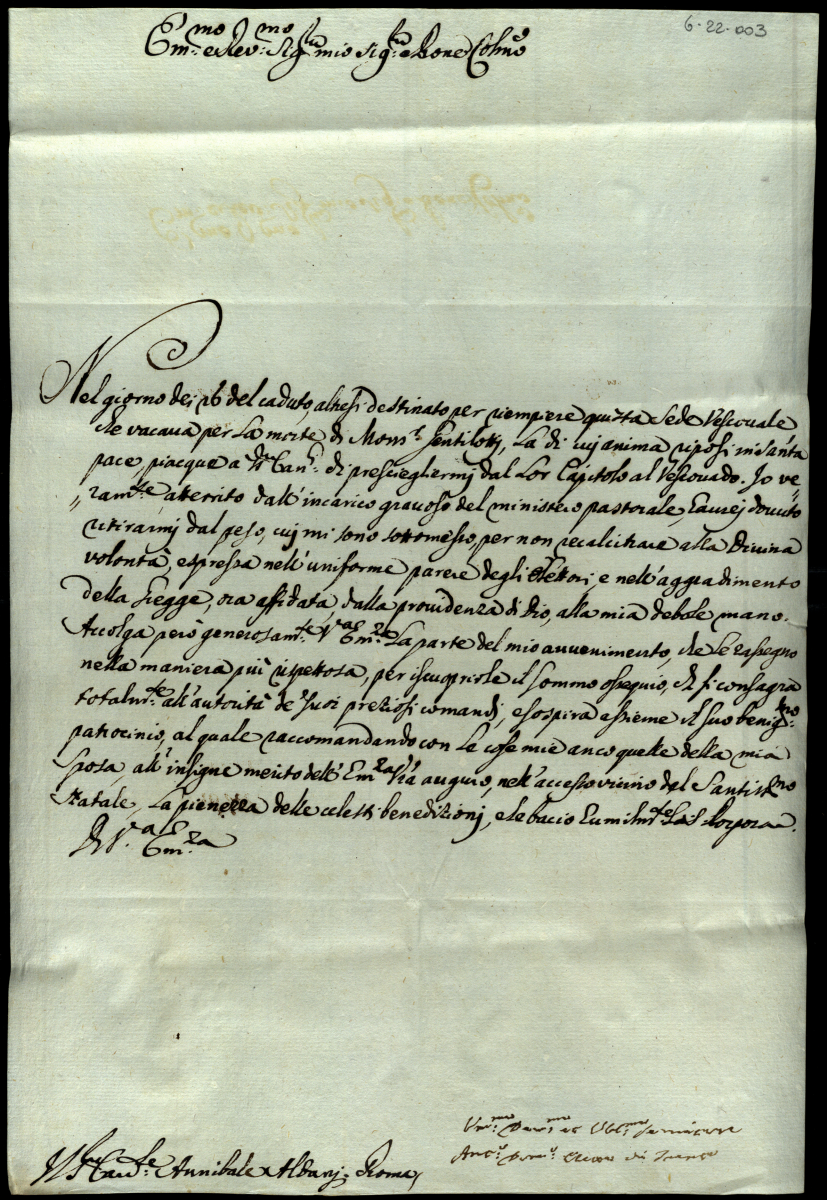 6-22-003
Em.mo e Rev.mo Sig.re mio Sig.re e Prone Colmo
Nel giorno dei 26 del caduto, altresi destinato per riempiere questa Sede Vescouale
che vacaua per la morte di Mons.r Gentilotti, la di cui anima riposi in santa
pace, piacque a di presciegliermi dal Lor Capitolo al Vescouado. Io ve„
„ram.te atterrito dall'incarico grauoso del ministero pastorale, haurej douuto
ritirarmj dal peso, cuj mi sono sottomesso, per non recalcitrare alla Diuina
volontà, espressa nell'uniforme parere degli Elettori, e nell'aggradimento
della Gregge, ora affidata dalla prouidenza di Dio, alla mia debole mano.
Accolga però generosam.te V.a Em.za la parte del mio auuenimento, che le rassegno
nella maniera più rispettosa, per iscuoprirle il sommo ossequio, ch si consagra
totalm.te all'autorità de' suoi preziosi comandi, e sospira assieme il suo benig.mo
patrocinio, al quale raccomandando con le cose mie anco quelle della mia
Sposa, all'insigne merito dell'Em.za Vra auguro, nell'accesso vicino del Santiss.mo
Natale, la pienezza delle celesti benedizionj, e le bacio humilm.te la S. Porpora.
Di V.a Em.za
Um.mo Deu.mo et Obl.mo Seruitore
Ant.o Dom.o di Trento
S.r Card.le Annibale Albanj Roma